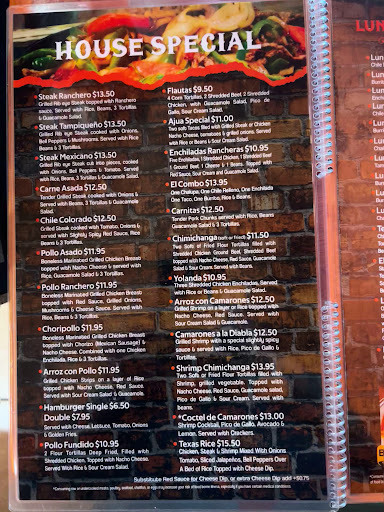 HOUSE SPECIAL
Steak Ranchero $13.50
Grilled Rib eye Steak topped with Ranchero
sauce, Served with Rice, Beans, 3 Tortillas
& Guacamole Salad.
Steak Tampiqueño $13.50
Grilled Rib eye Steak cooked with Onions,
Bell Peppers & Mushrooms. Served with Rice
Beans & 3 Tortillas.
Steak Mexicano $13.50
Grilled Rib eye Steak cut into pieces, cooked
with Onions, Bell Peppers & Tomato. Served
with Rice, Beans, 3 Tortillas & Guacamole Salad.
Carne Asada $12.50
Tender Grilled Steak cooked with Onions &
Served with Beans, 3 Tortillas &
Guacamole Salad.
Chile Colorado $12.50
Grilled Steak cooked with Tomato, Onions &
served with Slightly Spicy Red Sauce, Rice
Beans & 3 Tortillas.
Pollo Asado $11.95
Boneless Marinated Grilled Chicken Breast
topped with Nacho Cheese & served with
Rice, Guacamole Salad & 3 Tortillas.
Pollo Ranchero $11.95
Boneless Marinated Grilled Chicken Breast
topped with Red Sauce, Grilled Onions,
Mushrooms & Cheese Sauce. Served with
Rice, Beans & 3 Tortillas.
Choripollo $11.95
Boneless Marinated Grilled Chicken Breast
topped with Chorizo (Mexican Sausage) &
Nacho Cheese. Combined with one Chicken
Enchilada, Rice & 3 Tortillas.
Arroz con Pollo $11.95
Grilled Chicken Strips on a layer of Rice
topped with Nacho Cheese, Red Sauce.
Served with Sour Cream & Guacamole Salad.
Hamburger Single $6.50
Double $7.95
Served with Cheese, Lettuce, Tomato, Onions
& Golden Fries.
Pollo Fundido $10.95
2 Flour Tortillas Deep Fried, Filled with
Shredded Chicken, Topped with Nacho Cheese.
Served With Rice & Sour Cream Salad.
Flautas $9.50
4 Corn Tortillas, 2 Shredded Beef, 2 Shredded
Chicken, with Guacamole Salad, Pico de
Gallo, Sour Cream Salad.
Ajua Special $11.00
Two soft Tacos filled with Grilled Steak or Chicken
Nacho Cheese, tomatoes & grilled onions. Served
with Rice or Beans & Sour Cream Salad.
Enchiladas Rancheras $10.95
Five Enchiladas, 1 Shredded Chicken, 1 Shredded Beef
1 Ground Beef, 1 Cheese & 1 Beans. Topped with
Red Sauce, Sour Cream and Guacamole Salad.
El Combo $13.95
One Chalupa, One Chile Relleno, One Enchilada
One Taco, One Burrito, Rice & Beans.
Carnitas $12.50
Tender Pork Chunks served with Rice, Beans
Guacamole Salad & 3 Tortillas.
Chimichanga (soft or fried) $11.50
Two Soft or Fried Flour Tortillas filled with
Shredded Chicken Ground Beef, Shredded Beef
Topped with Nacho Cheese, Red Sauce, Guacamole
Salad & Sour Cream. Served with Beans.
Yolanda $10.95
Three Shredded Chicken Enchiladas, Served
with Rice or Beans & Guacamole Salad.
Arroz con Camarones $12.50
Grilled Shrimp on a layer or Rice topped with
Nacho Cheese, Red Sauce. Served with Sour
Cream Salad & Guacamole.
Camarones a la Diabla $12.50
Grilled Shrimp with a special slightly spicy
sauce & served with Rice, Pico de Gallo &
Tortillas.
Shrimp Chimichanga $13.95
Two Soft or Fried Flour Tortillas filled with
Shrimp, grilled vegetable. Topped with
Nacho Cheese, Red Sauce, Guacamole salad,
Pico de Gallo & Sour Cream. Served with
beans.
*Coctel de Camarones $13.00
Shrimp Cocktail, Pico de Gallo, Avocado &
Lemon. Served with Crackers.
Texas Rice $15.50
Chicken, Steak & Shrimp Mixed With Onions
Tomato, Sliced Jalapeños, Bell Peppers Over
A Bed of Rice Topped with Cheese Dip.
Substitute Red Sauce for Cheese Dip, or extra Cheese Dip add +$0.75